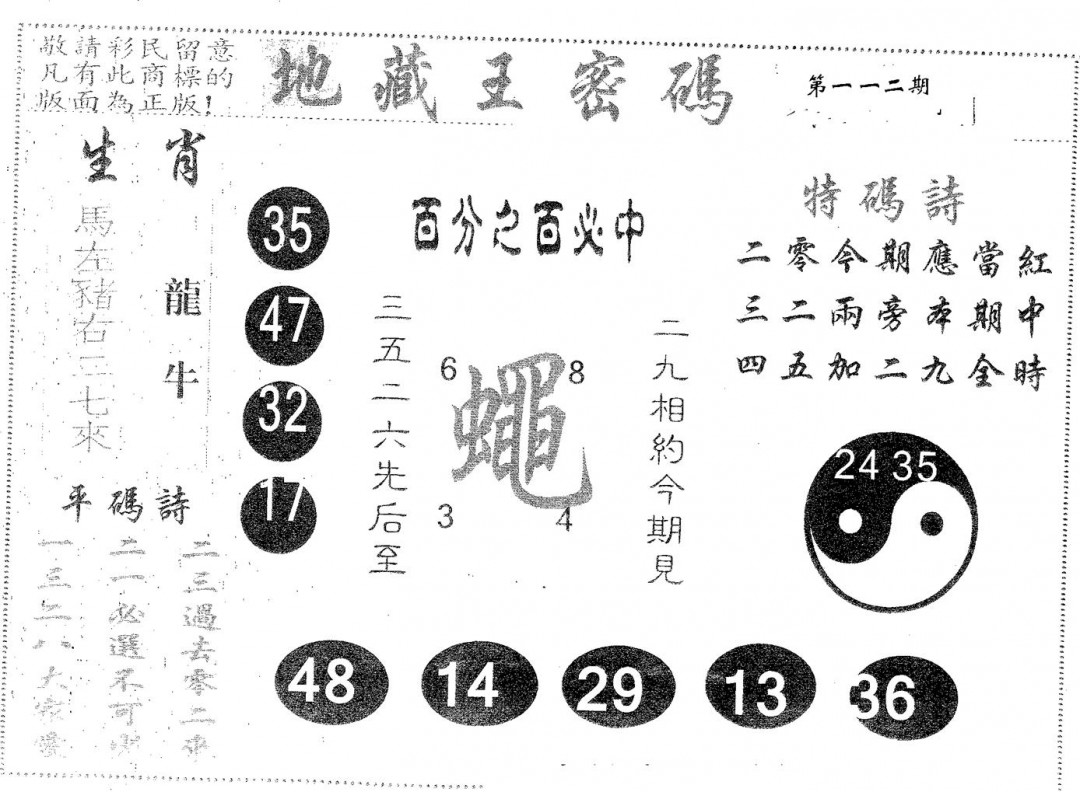 敬請彩民留意
凡有此商標的
版面為正版!
地藏王密碼
第一一二期
生肖
馬左豬右三七來
龍牛
35
47
32
17
百分之百必中
三五二六先后至
6
8
蠅
3
4
二九相約今期見
特碼詩
二零今期應當紅
三二兩旁本期中
四五加二九全時
24 35
平碼詩
一三二八大家愛
二一必選不可
二三過去零二來
48
14
29
13
36